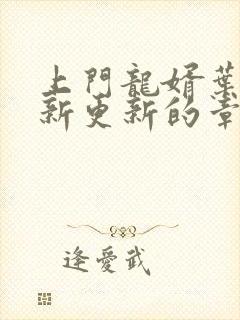 上門龍婿葉
新更新的章
逢愛武